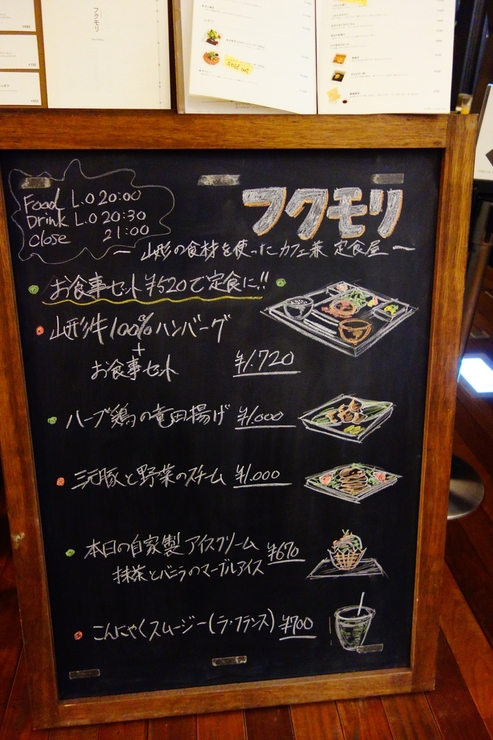 フクモリ
sold out
Food L.O 20:00
Drink L.O 20:30
Close 21:00
フクモリ
ー 山形の食材を使ったカフェ兼定食屋 ー
お食事セット¥520で定食に!!
山形牛100%ハンバーグ
+
お食事セット ¥1.720
ハーブ鶏の竜田揚げ ¥1.000
三元豚と野菜のスチーム ¥1.000
本日の自家製アイスクリーム ¥670
抹茶とバニラのマーブルアイス
こんにゃくスムージー(ラ・フランス) ¥700